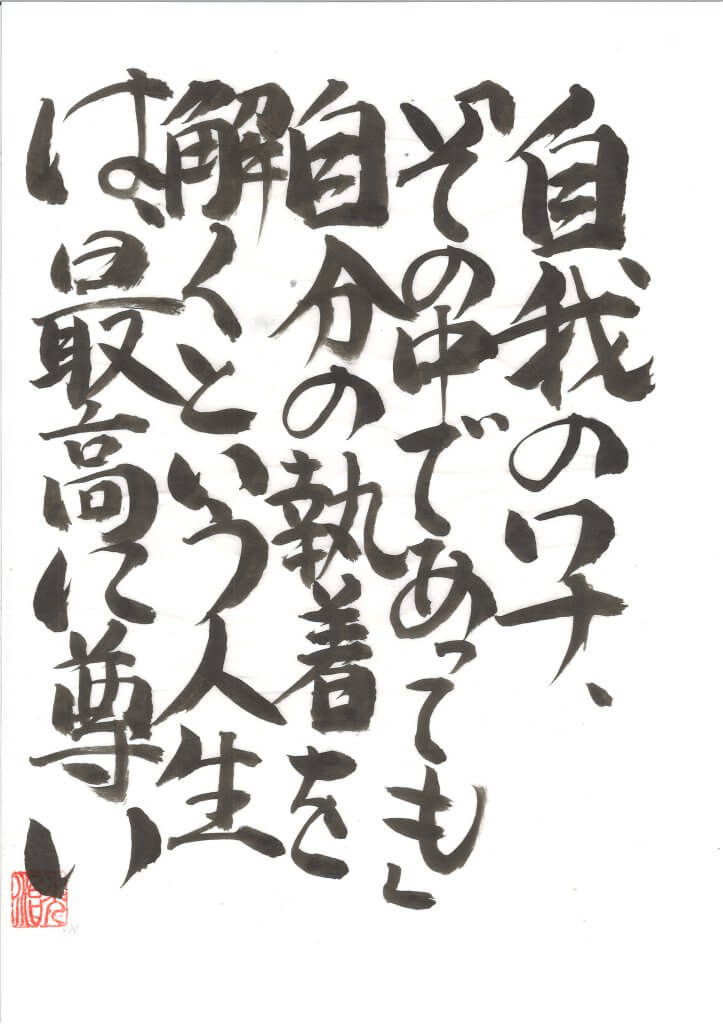 自我のワナ、
「その中であっても」
自分の執着を
解くという人生
は、最高に尊い